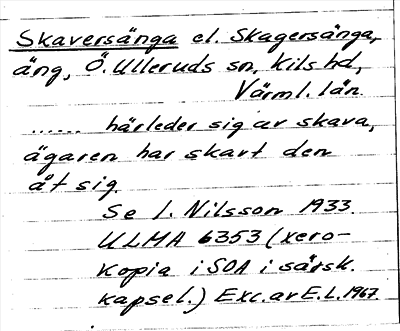 Skaversänga el. Skagersänga,
äng, Ö. Ulleruds sn, Kils hd,
Värml. län
...... härleder sig av skava,
ägaren har skavt den
åt sig.
Se I. Nilsson 1933.
ULMA 6353 (xero-
kopia i SOA i särsk.
kapsel.) Exc. av E.L. 1967